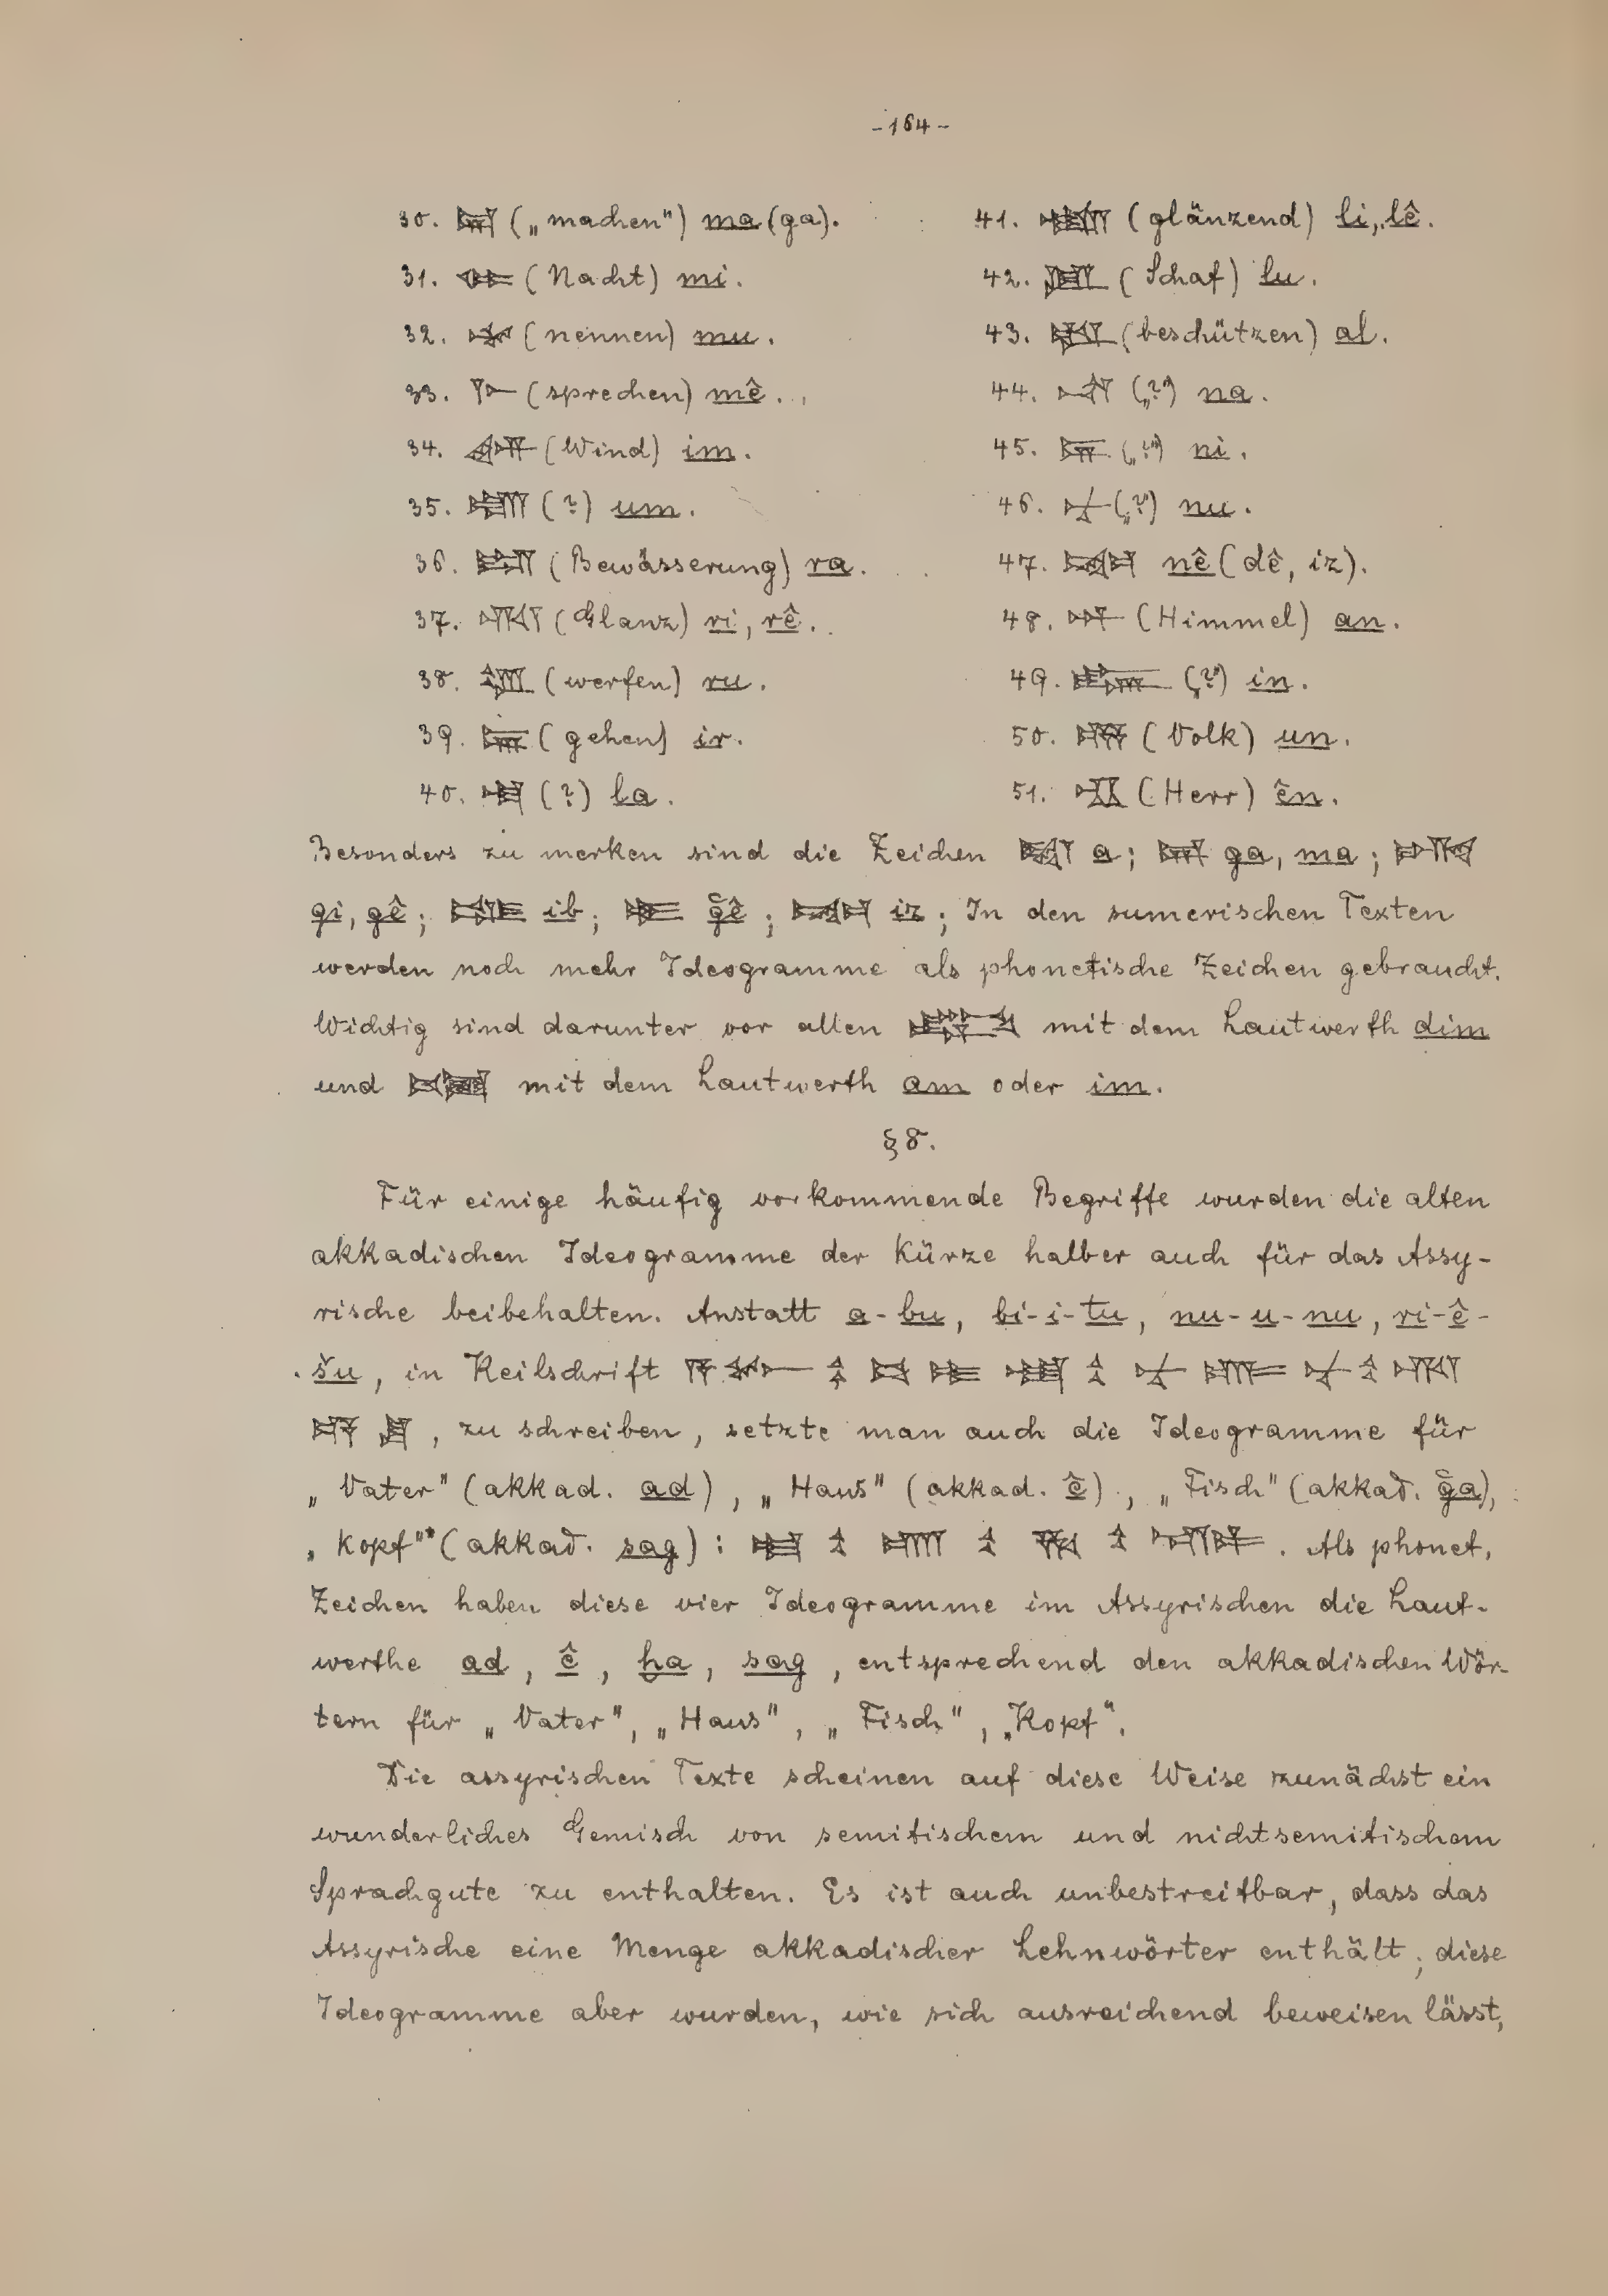 -164-
30. („machen") ma (ga).
31. (Nacht) mi.
32. (nennen) mu.
33. (sprechen) mê.
34. (Wind) im.
35. (?) um.
36. (Bewässerung) ra.
37. (Glanz) ri, rê.
38. (werfen) ru.
39. (gehen) ir.
40. (?) la.
41. (glänzend) li, lê.
42. (Schaf) lu.
43. (beschützen) al.
44. („?") na.
45. („?") ni.
46. („?") nu.
47. nê (dê, iz).
48. (Himmel) an.
49. („?") in.
50. (Volk) un.
51. (Herr) ên.
Besonders zu merken sind die Zeichen a; ga, ma;
gi, gê; ib; g̃ê; iz; In den sumerischen Texten
werden noch mehr Ideogramme als phonetische Zeichen gebraucht.
Wichtig sind darunter vor allen mit dem Lautwerth dim
und mit dem Lautwerth am oder im.
§ 8.
Für einige häufig vorkommende Begriffe wurden die alten
akkadischen Ideogramme der Kürze halber auch für das Assy-
rische beibehalten. Anstatt a-bu, bi-i-tu, nu-u-nu, ri-ê-
šu, in Keilschrift
, zu schreiben, setzte man auch die Ideogramme für
„Vater" (akkad. ad), „Haus" (akkad. ê), „Fisch" (akkad. g̃a),
„Kopf" (akkad. sag): . Als phonet.
Zeichen haben diese vier Ideogramme im Assyrischen die Laut-
werthe ad, ê, ḫa, sag, entsprechend den akkadischen Wör-
tern für „Vater", „Haus", „Fisch", „Kopf".
Die assyrischen Texte scheinen auf diese Weise zunächst ein
wunderliches Gemisch von semitischem und nichtsemitischem
Sprachgute zu enthalten. Es ist auch unbestreitbar, dass das
Assyrische eine Menge akkadischer Lehnwörter enthält; diese
Ideogramme aber wurden, wie sich ausreichend beweisen lässt,